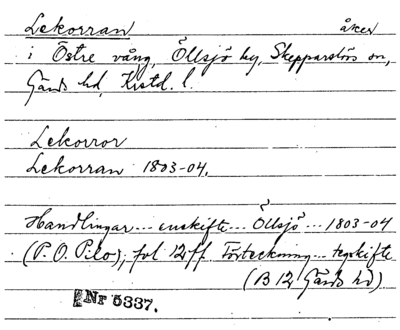 Lekorran åker
i Östre vång, Öllsjö by, Skepparslövs sn,
Gärds hd, Krstd. l.
Lekorror
Lekorran 1803-04.
Handlingar --- enskifte --- Öllsjö --- 1803-04
(P. O. Pilo), fol 12 ff. Förteckning --- tegskifte
(B 12 Gärds hd)
Nr 5337.